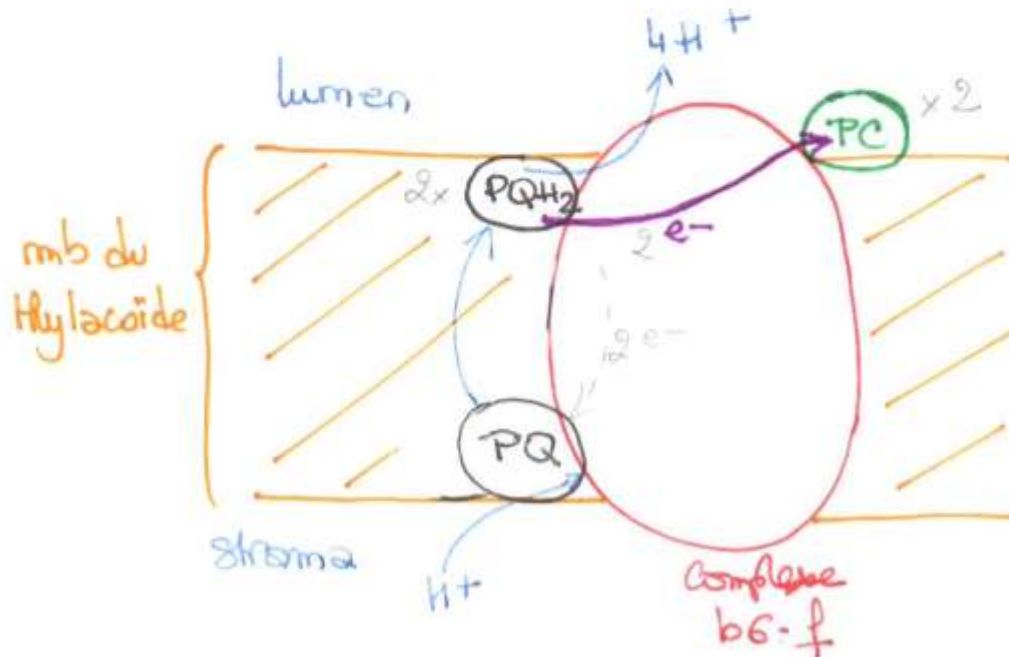 4H+
lumen
PC
x 2
2x
PQH2
2 e-
mb du
thylacoïde
2 e-
PQ
stroma
H+
Complexe
b6-f